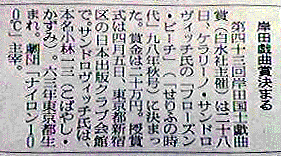 岸田戯曲賞決まる
第四十三回岸田国士戯曲
賞(白水社主催)は二十八
日、ケラリーノ・サンドロ
ヴィッチ氏の「フローズン
・ビーチ」(「せりふの時
代」九八年秋号)に決まっ
た。賞金は二十万円。授賞
式は四月五日、東京都新宿
区の日本出版クラブ会館
で。サンドロヴィッチ氏は、
本名小林一三(こばやし・
かずみ)。六三年東京都生
まれ。劇団「ナイロン10
0℃」主宰。